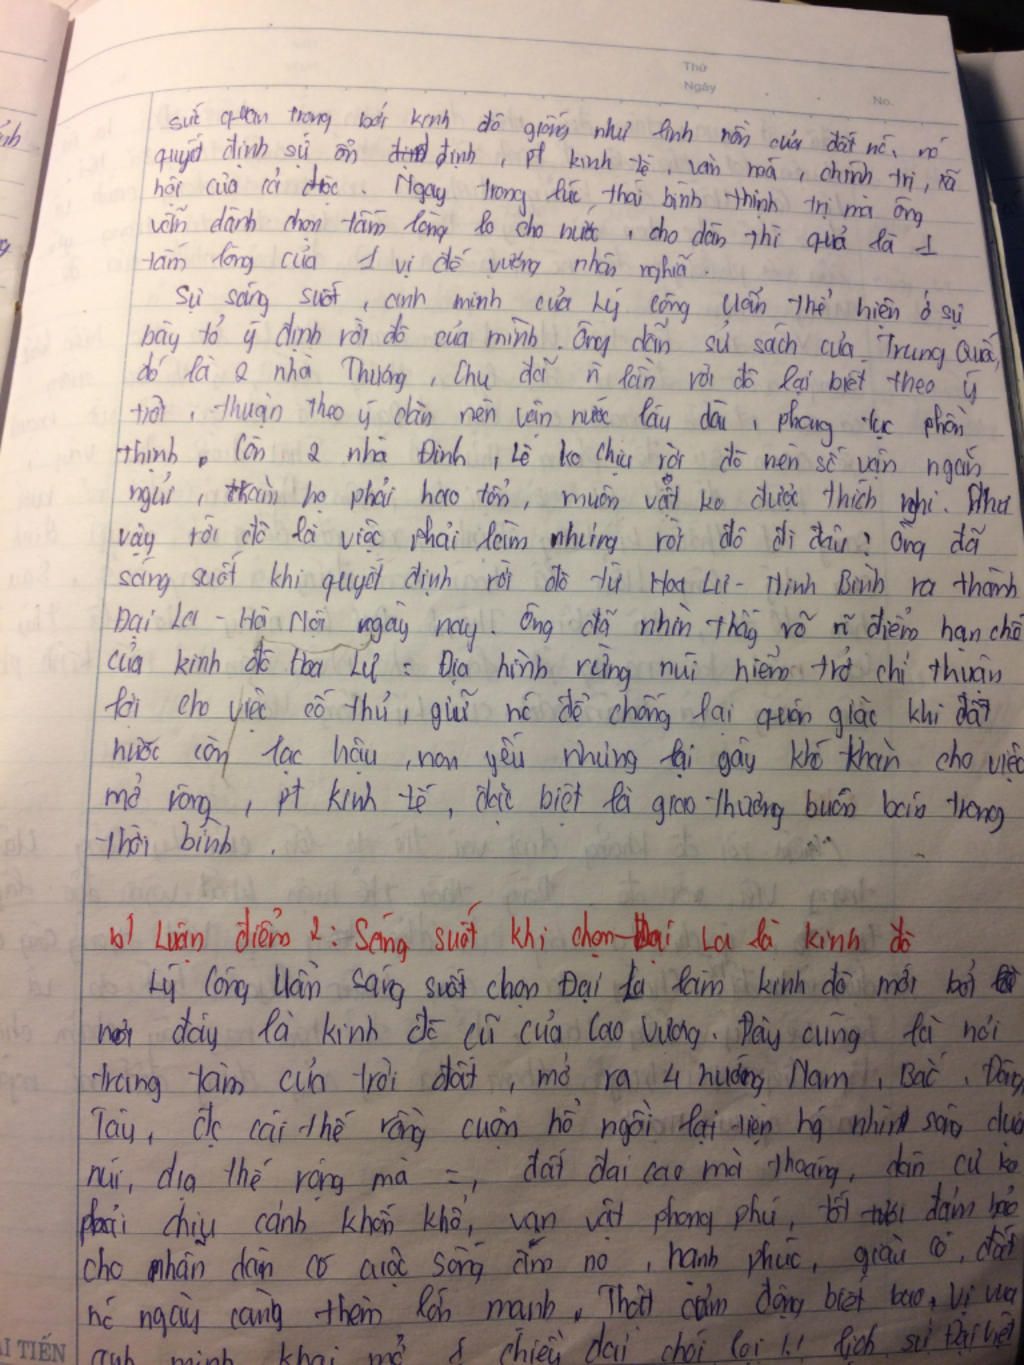 Thứ
Ngày
No.
sức quan trọng bởi kinh đô giống như linh hồn của đất nc, nó
quyết định sự ổn định, pt kinh tế, văn hoá, chính trị, xã
hội của cả dtộc. Ngay trong lúc thái bình thịnh trị mà ông
vẫn dành chọn tấm lòng lo cho nước, cho dân thì quả là 1
tấm lòng của 1 vị đế vương nhân nghĩa.
Sự sáng suốt, anh minh của Lý Công Uẩn thể hiện ở sự
bày tỏ ý định rời đô của mình. Ông dẫn sử sách của Trung Quốc,
đó là 2 nhà Thương, Chu đã n lần rời đô lại biết theo ý
trời, thuận theo ý dân nên vận nước lâu dài, phong tục phồn
thịnh. Còn 2 nhà Đinh, Lê ko chịu rời đô nên số vận ngắn
ngủi, trăm họ phải hao tổn, muôn vật ko được thích nghi. Như
vậy rời đô là việc phải làm nhưng rời đô đi đâu? Ông đã
sáng suốt khi quyết định rời đô từ Hoa Lư - Ninh Bình ra thành
Đại La - Hà Nội ngày nay. Ông đã nhìn thấy rõ n điểm hạn chế
của kinh đô Hoa Lư: Địa hình rừng núi hiểm trở chỉ thuận
lợi cho việc cố thủ, giữ nc để chống lại quân giặc khi đất
nước còn lạc hậu, non yếu nhưng lại gây khó khăn cho việc
mở rộng, pt kinh tế, đặc biệt là giao thương buôn bán trong
thời bình.
b) Luận điểm 2: Sáng suốt khi chọn Đại La là kinh đô
Lý Công Uẩn sáng suốt chọn Đại La làm kinh đô mới bởi
nơi đây là kinh đô cũ của Cao Vương. Đây cũng là nơi
trung tâm của trời đất, mở ra 4 hướng Nam, Bắc, Đông,
Tây, đc cái thế rồng cuộn hổ ngồi lại tiện hg nhìn sông dựa
núi, địa thế rộng mà =, đất đai cao mà thoáng, dân cư ko
phải chịu cảnh khốn khổ, vạn vật phong phú, tốt tươi đảm bảo
cho nhân dân có cuộc sống ấm no, hạnh phúc, giàu có, đất
nc ngày càng thêm lớn mạnh. Thật cảm động biết bao, vị vua
anh minh khai mở triều đại chói lọi lịch sử Đại Việt
AI TIẾN